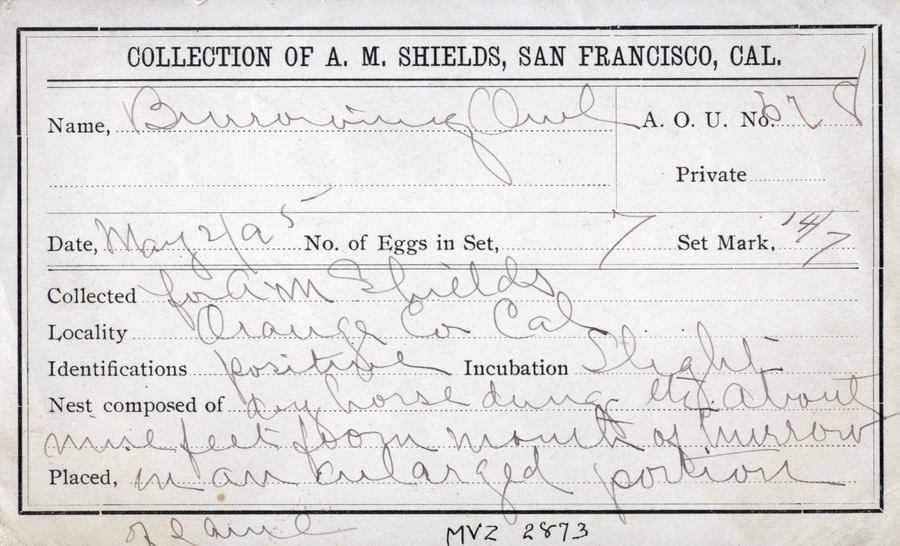 COLLECTION OF A. M. SHIELDS, SAN FRANCISCO, CAL.
Name, Burrowing Owl A. O. U. No. 378
Private
Date, May 2/95 No. of Eggs in Set, 7 Set Mark, 14/7
Collected for A M Shields
Locality Orange Co Cal
Identifications positive Incubation Slight
Nest composed of dry horse dung etc. about
nine feet from mouth of burrow
Placed, in an enlarged portion
of same
MVZ 2873